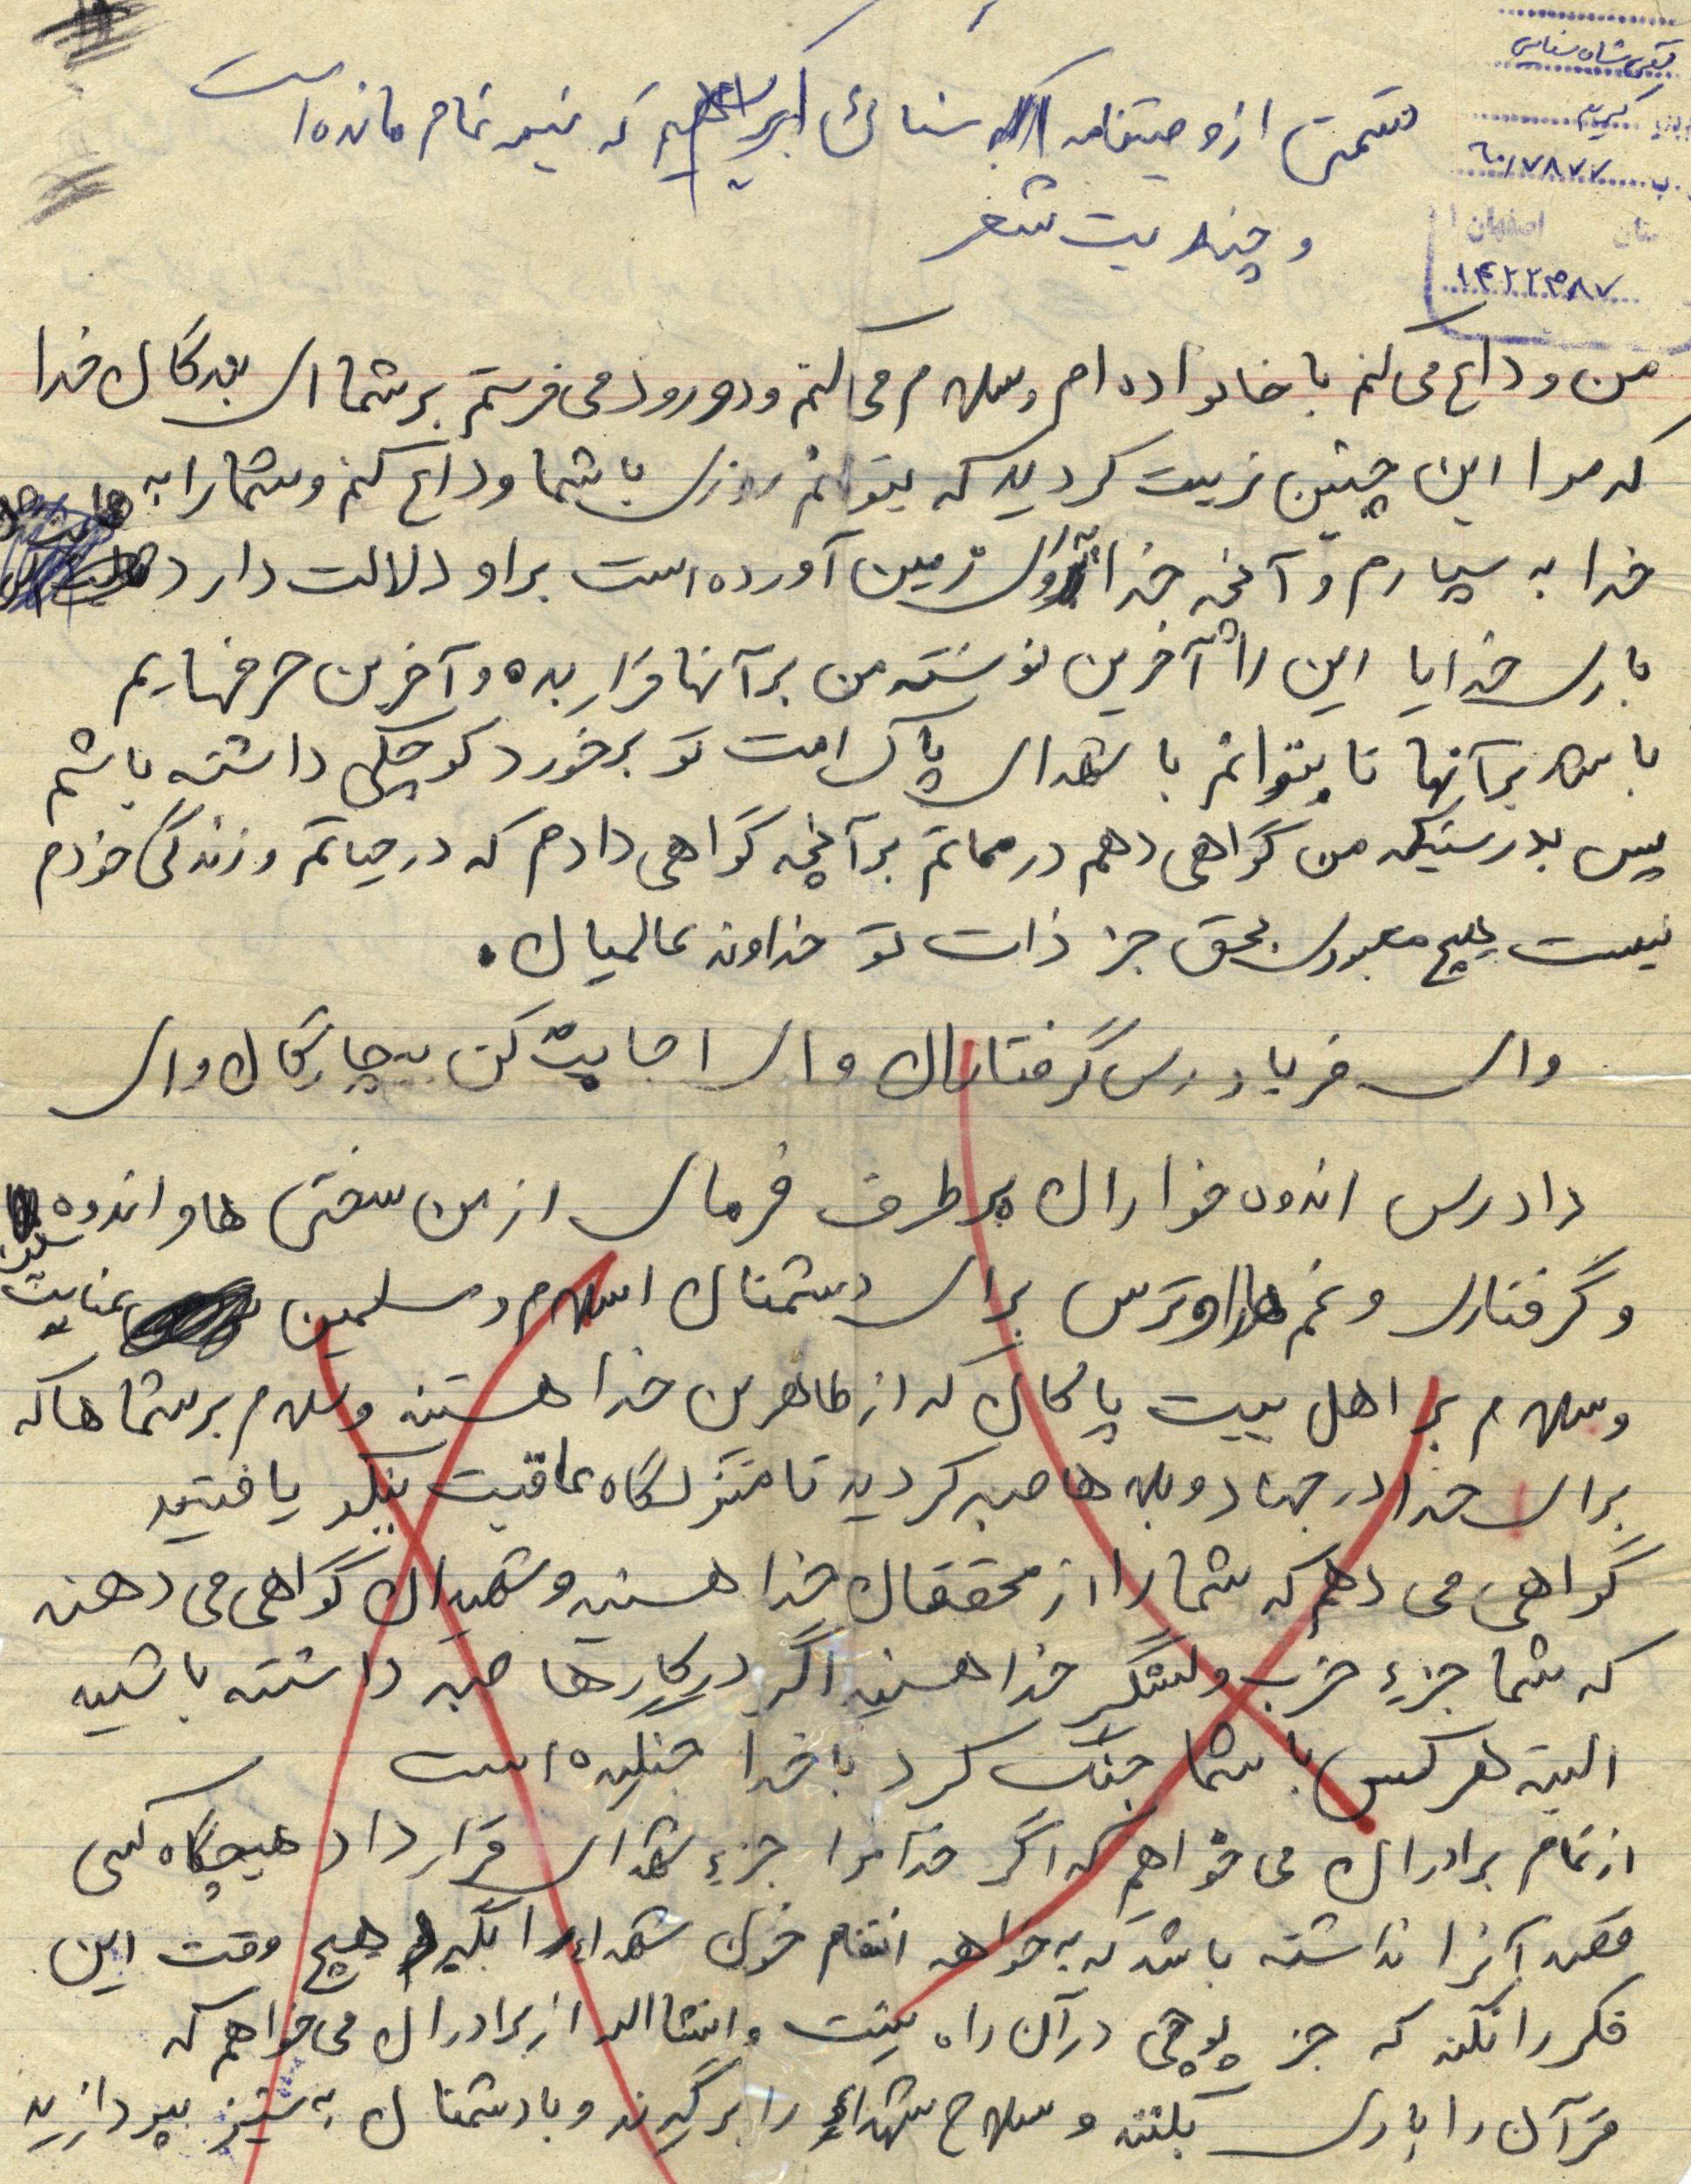 تقی شاه سنایی
کریم
۶۰۱۷۸۷۷
اصفهان
۱۴۲۲۳۸۷
قسمتی از وصیتنامه سنائی ابراهیم که نیمه تمام مانده است
و چند بیت شعر
من وداع می کنم با خانواده ام و سلام می کنم و درورود می فرستم بر شما ای بندگان خدا
که مرا این چنین تربیت کردید که بتوانم روزی با شما وداع کنم و شما را به
خدا به سپارم و آنچه خدا زمین آورده است براو دلالت دارد
بار خدایا این را آخرین نوشته من بر آنها قرار بده و آخرین حرفهایم
باشد بر آنها تا بتوانم با شهدای پاک امت تو برخورد کوچکی داشته باشم
پس بدرستیکه من گواهی دهم در مماتم بر آنچه گواهی دادم که در حیاتم و زندگی خودم
نیست هیچ معبودی بحق جز ذات تو خداوند عالمیان .
وای فریاد رس گرفتاران وای اجابت کن بیچارگان وای
دادرس اندوه خواران برطرف فرمای از من سختی ها و اندوه
و گرفتاری و غم ها را و ترس برای دشمنان اسلام و مسلمین عنایت
وسلام بر اهل بیت پاکان که از طاهرین خدا هستند و سلام بر شما ها که
برای خدا در جهاد و بلا ها صبر کردید تا منزلگاه عاقبت نیکو یافتید
گواهی می دهم که شما را از محققان خدا هستید و شهیدان گواهی می دهند
که شما جزء حزب و لشگر خدا هستید اگر در کارها صبر داشته باشید
البته هر کس با شما جنگ کرد با خدا جنگیده است
از تمام برادران می خواهم که اگر خدا مرا جزء شهدای قرار داد هیچگاه کسی
قصد آنرا نداشته باشد که به خواهد انتقام خون شهداء را بگیرد هیچ وقت این
فکر را نکند که جز پوچی در آن راه نیست و انشاالله از برادران می خواهم که
قرآن را یاری بکنند و سلاح شهداء را برگیرند و با دشمنان به ستیز بپردازید